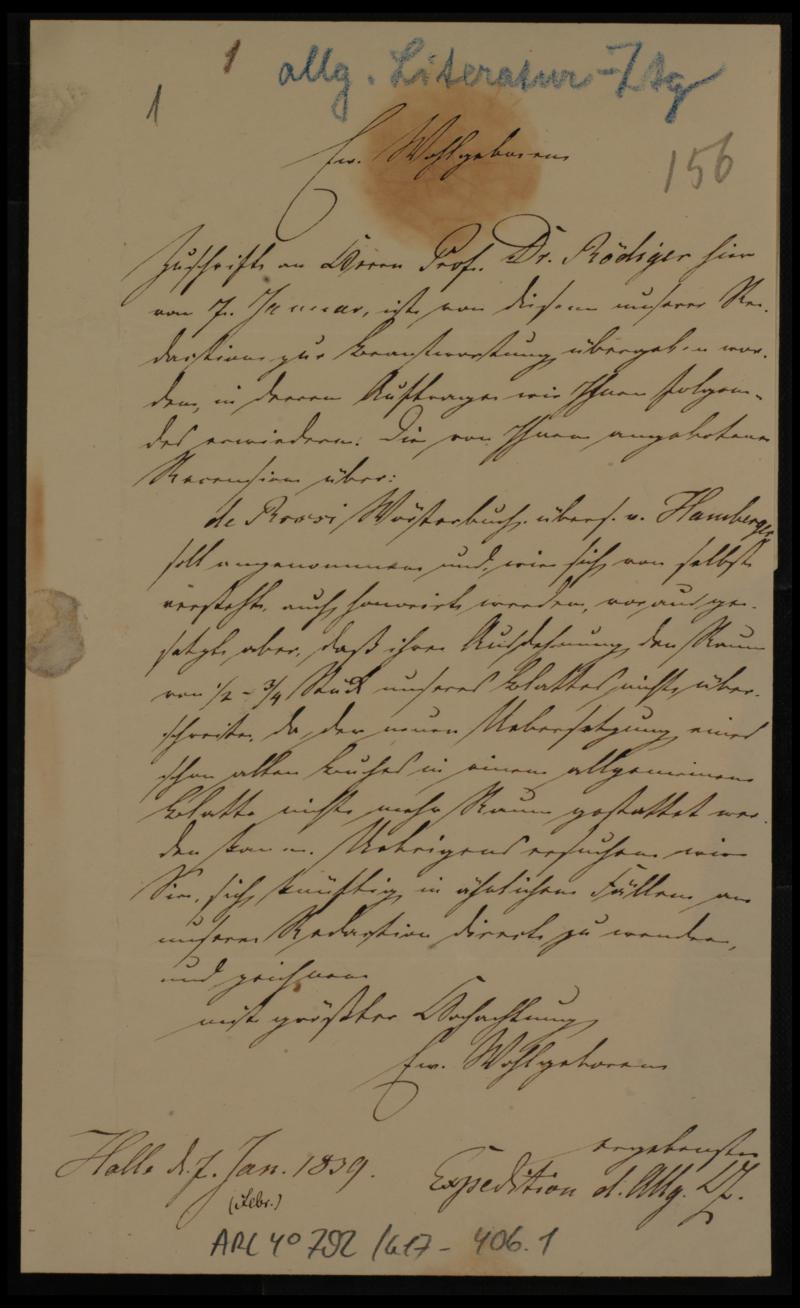 1 allg. Literatur-Ztg
1
156
Ew. Wohlgeboren
Zuschrift an Herrn Prof. Dr. Rödiger hier
vom 7. Januar, ist von diesem unserer Re-
daction zur Beantwortung übergeben wor-
den, in deren Auftrage wir Ihnen folgen-
des erwiedern. Die von Ihnen angebotene
Recension über:
de Rossi Wörterbuch übers. v. Hamberger
soll angenommen und, wie sich von selbst
versteht, auch honorirt werden, vorausge-
setzt aber, daß ihre Ausdehnung den Raum
von 1/2 - 3/4 Stück unseres Blattes nicht über-
schreite, da der neuen Uebersetzung eines
schon alten Buches in einem allgemeinen
Blatte nicht mehr Raum gestattet wer-
den kann. Uebrigens ersuchen wir
Sie, sich künftig in ähnlichen Fällen an
unsere Redaction direct zu wenden,
und zeichnen
mit größter Hochachtung
Ew. Wohlgeboren
ergebenste
Halle d. 7. Jan. 1839.
Expedition d. Allg. LZ.
(Febr.)
ARC 4° 792 /G17 - 406.1